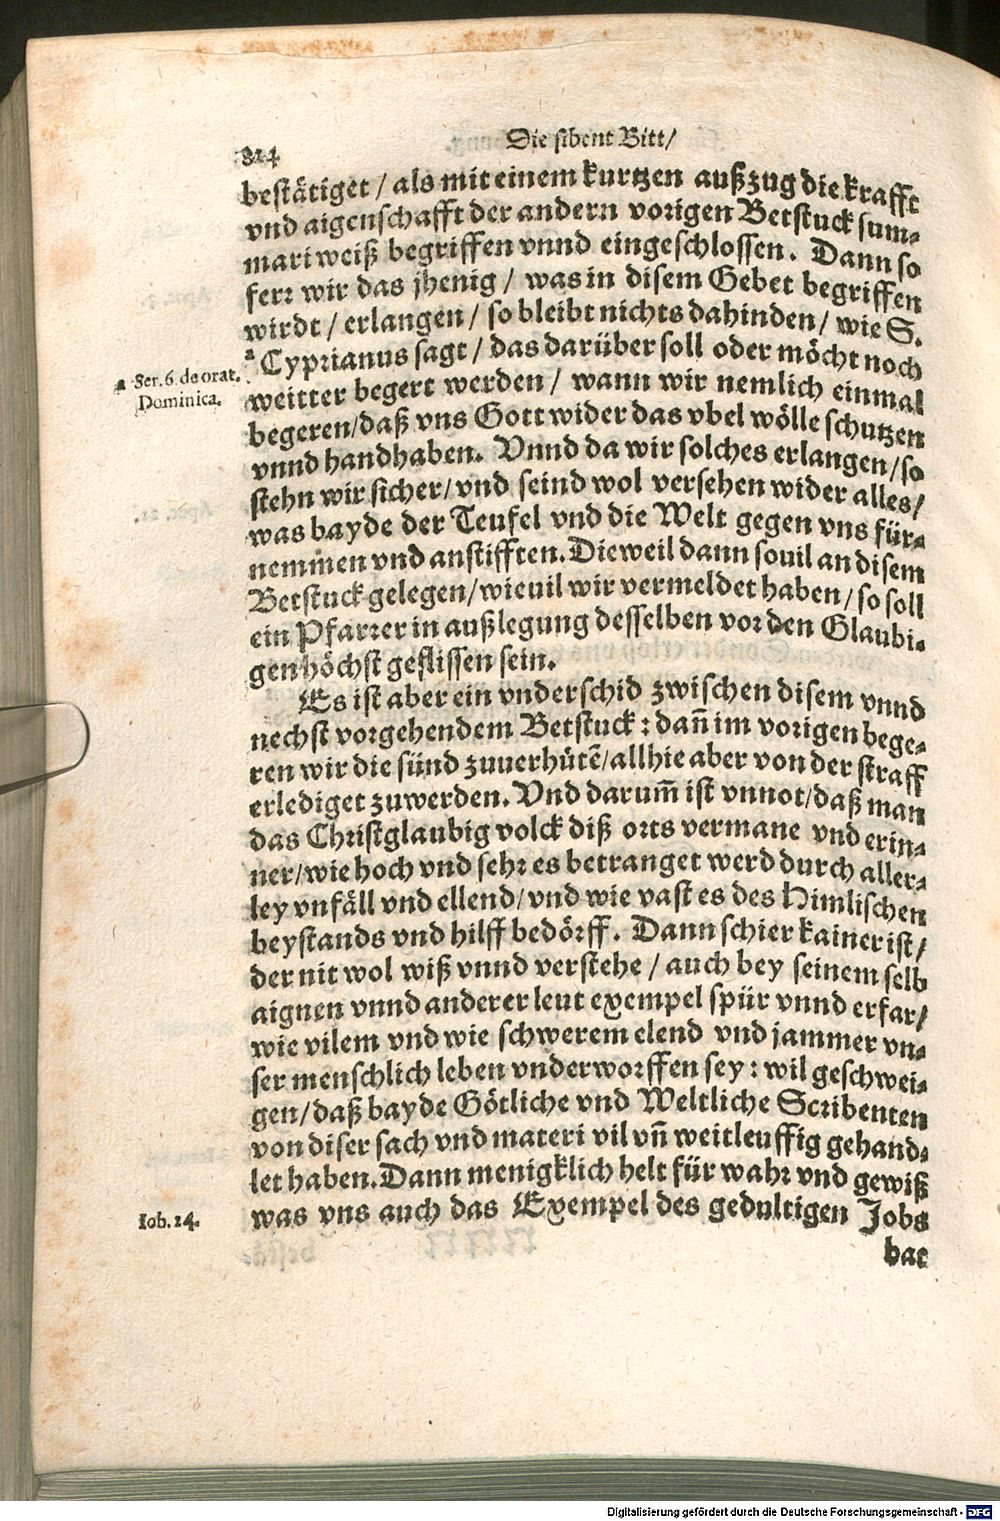 Die sibent Bitt/
314
bestätiget / als mit einem kurtzen außzug die krafft
vnd aigenschafft der andern vorigen Betstuck sum⸗
mari weiß begriffen vnnd eingeschlossen. Dann so
ferr wir das jhenig / was in disem Gebet begriffen
wirdt / erlangen / so bleibt nichts dahinden / wie S.
ᵃ Cyprianus sagt / das darüber soll oder möcht noch
a Ser. 6. de orat.
Dominica.
weitter begert werden / wann wir nemlich einmal
begeren/daß vns Gott wider das vbel wölle schutzen
vnnd handhaben. Vnnd da wir solches erlangen/so
stehn wir sicher/vnd seind wol versehen wider alles/
was bayde der Teufel vnd die Welt gegen vns für⸗
nemmen vnd anstifften. Dieweil dann souil an disem
Betstuck gelegen/wieuil wir vermeldet haben/so soll
ein Pfarrer in außlegung desselben vor den Glaubi⸗
gen höchst geflissen sein.
Es ist aber ein vnderschid zwischen disem vnnd
nechst vorgehendem Betstuck : dañ im vorigen bege⸗
ren wir die sünd zuuerhütẽ/allhie aber von der straff
erlediget zuwerden. Vnd darum̃ ist vnnot/daß man
das Christglaubig volck diß orts vermane vnd erin⸗
ner/wie hoch vnd sehr es betranget werd durch aller⸗
ley vnfäll vnd ellend/vnd wie vast es des Himlischen
beystands vnd hilff bedörff. Dann schier kainer ist/
der nit wol wiß vnnd verstehe / auch bey seinem selb
aignen vnnd anderer leut exempel spür vnnd erfar/
wie vilem vnd wie schwerem elend vnd jammer vn⸗
ser menschlich leben vnderworffen sey : wil geschwei⸗
gen/daß bayde Götliche vnd Weltliche Scribenten
von diser sach vnd materi vil vñ weitleuffig gehand⸗
let haben. Dann menigklich helt für wahr vnd gewiß
was vns auch das Exempel des gedultigen Jobs
Iob. 14.
hat
Digitalisierung gefördert durch die Deutsche Forschungsgemeinschaft - DFG